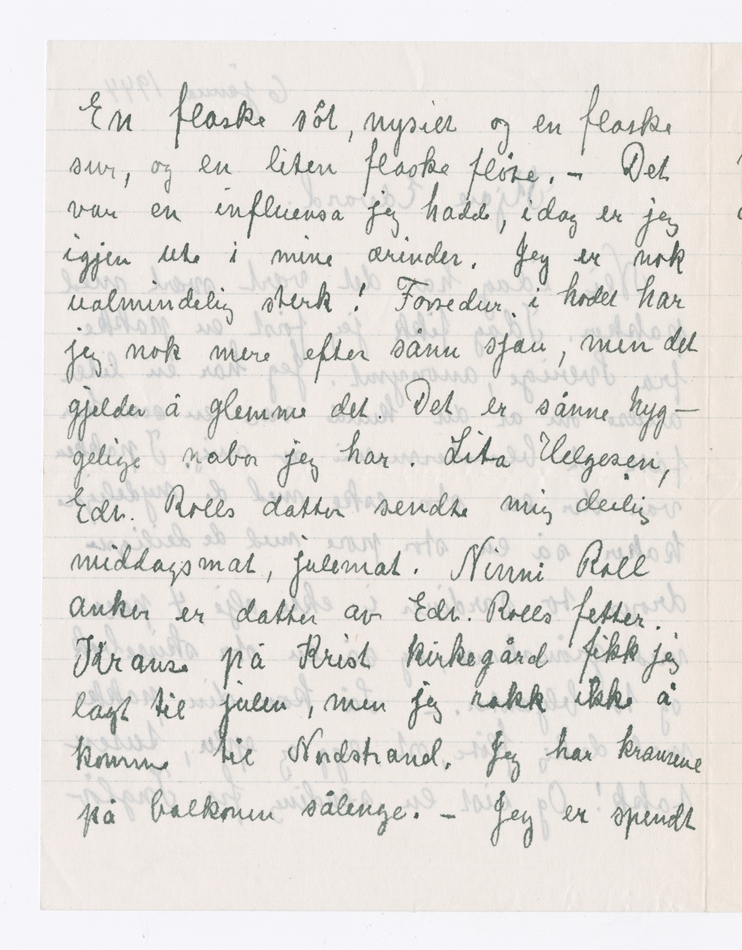 En flaske söt, nysiet og en flaske
sur, og en liten flaske fløte. - Det
var en influensa jeg hadde, idag er jeg
igjen ute i mine ærinder. Jeg er nok
ualmindelig sterk! Forredur i hodet har
jeg nok mere efter sånn sjau, men det
gjelder å glemme det. Det er sånne hyg-
gelige nabor jeg har. Lita Helgesen,
Edv. Rolls datter sendte mig deilig
middagsmat, julemat. Ninni Roll
Anker er datter av Edv. Rolls fetter.
Kranse på Krist Kirkegård fikk jeg
lagt til julen, men jeg rakk ikke å
komme til Nordstrand. Jeg har kransene
på balkonen sålenge. - Jeg er spendt